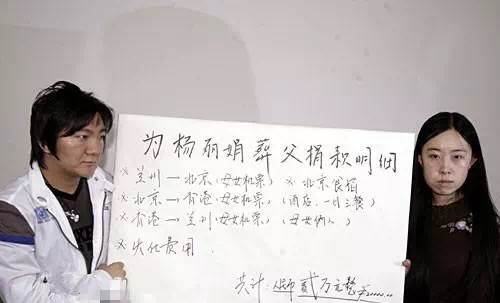 为杨丽娟葬父捐款明细
※ 兰州 → 北京（母女机票） ※ 北京食宿
※ 北京 → 香港（母女机票）（酒店、一日三餐）
※ 香港 → 兰州（母女机票）（母女俩人）
※ 火化费用
共计：人民币贰万元整